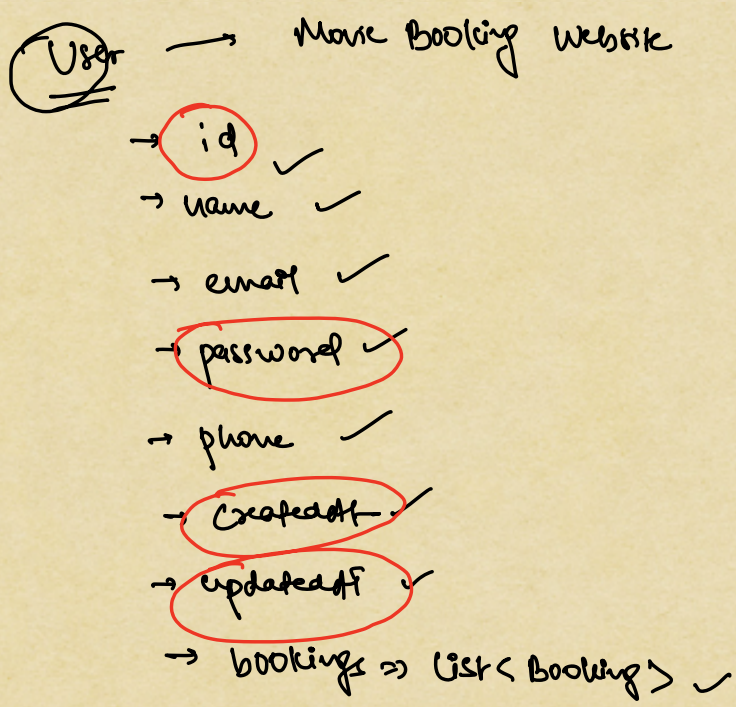 User → Movie Booking Website
→ id ✓
→ name ✓
→ email ✓
→ password ✓
→ phone ✓
→ createdAt ✓
→ updatedAt ✓
→ bookings => List< Booking> ✓